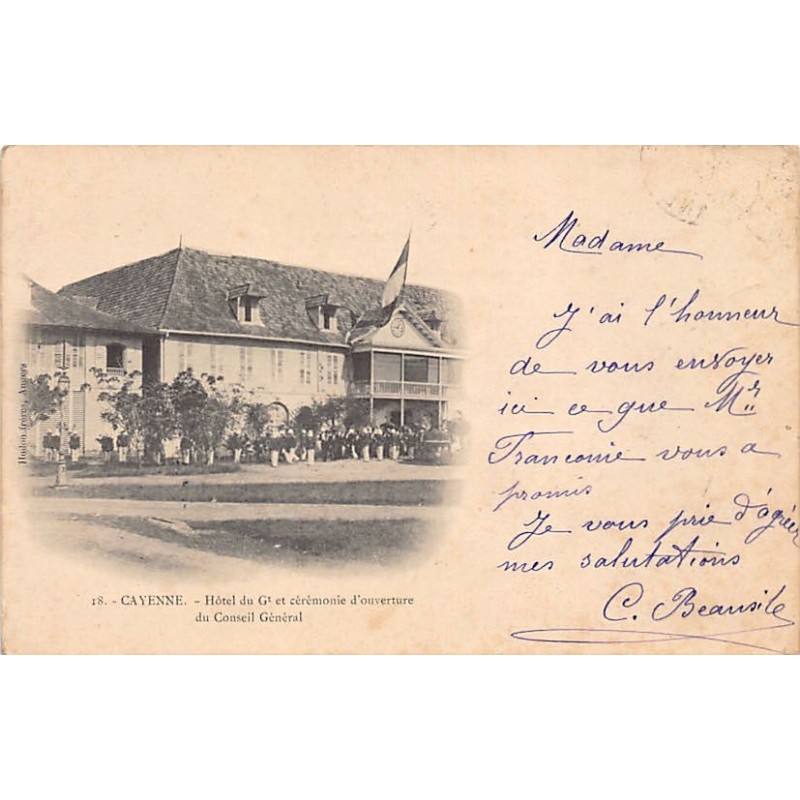 Madame
J'ai l'honneur
de vous envoyer
ici ce que Mr
Franconie vous a
promis
Je vous prie d'agréer
mes salutations
C. Beausite
18. - CAYENNE. - Hôtel du Gt et cérémonie d'ouverture
du Conseil Général